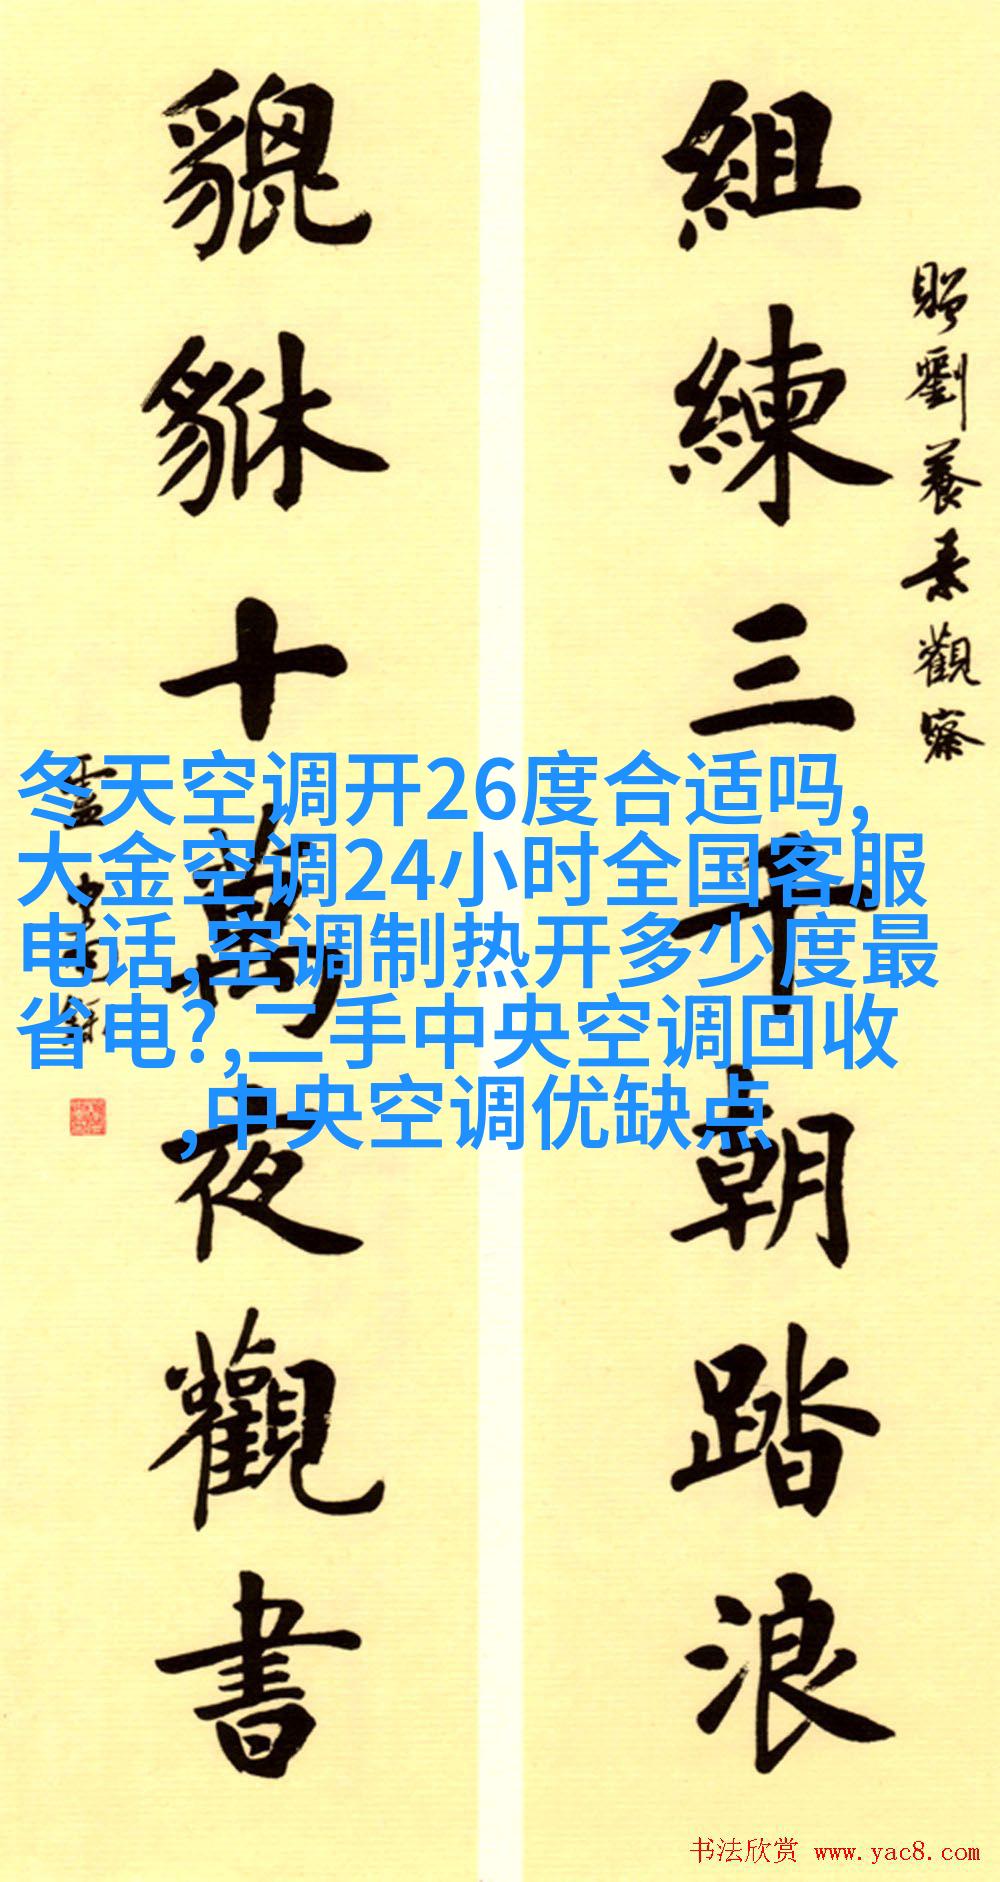 組練三千朝踏浪
贈劉養素觀察
貔貅十萬夜觀書
冬天空调开26度合适吗,
大金空调24小时全国客服
电话,空调制热开多少度最
省电?,二手中央空调回收
,中央空调优缺点
书法欣赏 www.yac8.com